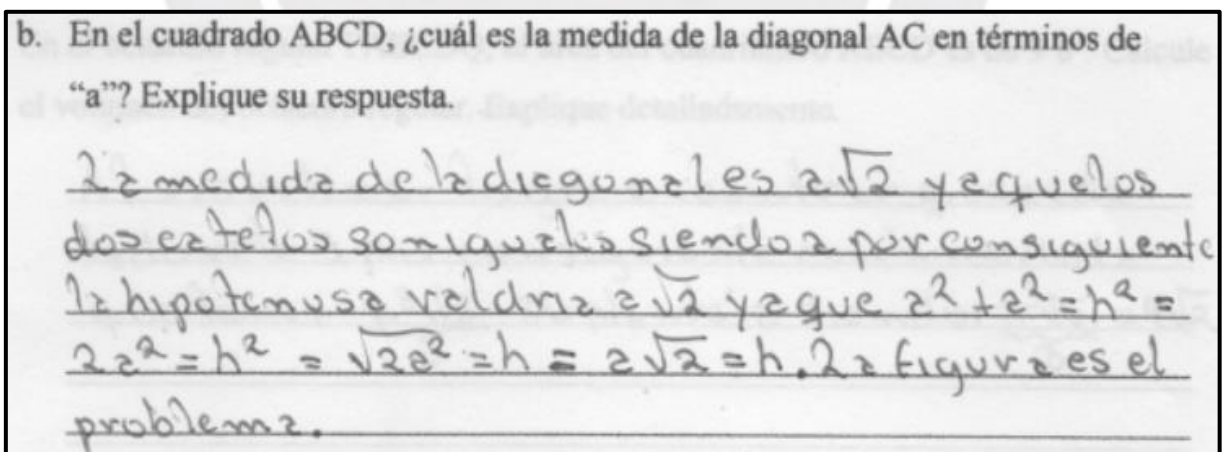 b. En el cuadrado ABCD, ¿cuál es la medida de la diagonal AC en términos de
“a”? Explique su respuesta.
La medida de la diagonal es a√2 ya que los
dos catetos son iguales siendo a por consiguiente
la hipotenusa valdria a√2 ya que a² + a² = h² =
2a² = h² = √2a² = h = a√2 = h. La figura es el
problema.